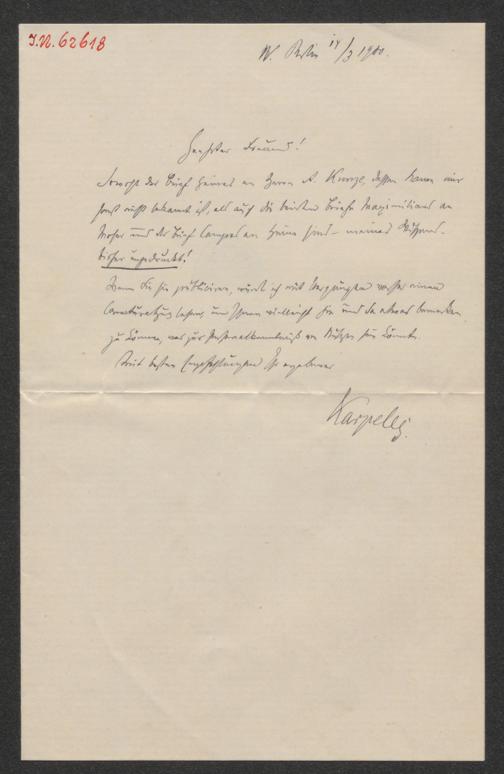 I.N. 62618
W. Berlin 14/3 1900.
Geehrter Freund!
Sowohl der Brief Heines an Herrn A. Kunze, dessen Name mir
sonst nicht bekannt ist, als auch die beiden Briefe Maximilians an
Moser und der Brief Campes an Heine sind – meines Wissens –
bisher ungedruckt!
Wenn Sie sie publiciren, würde ich mit Vergnügen vorher einen
Correcturabzug lesen, um Ihnen vielleicht hie und da etwas bemerken
zu können, was zur
Mit besten Empfehlungen Ihr ergebener
Karpeles.